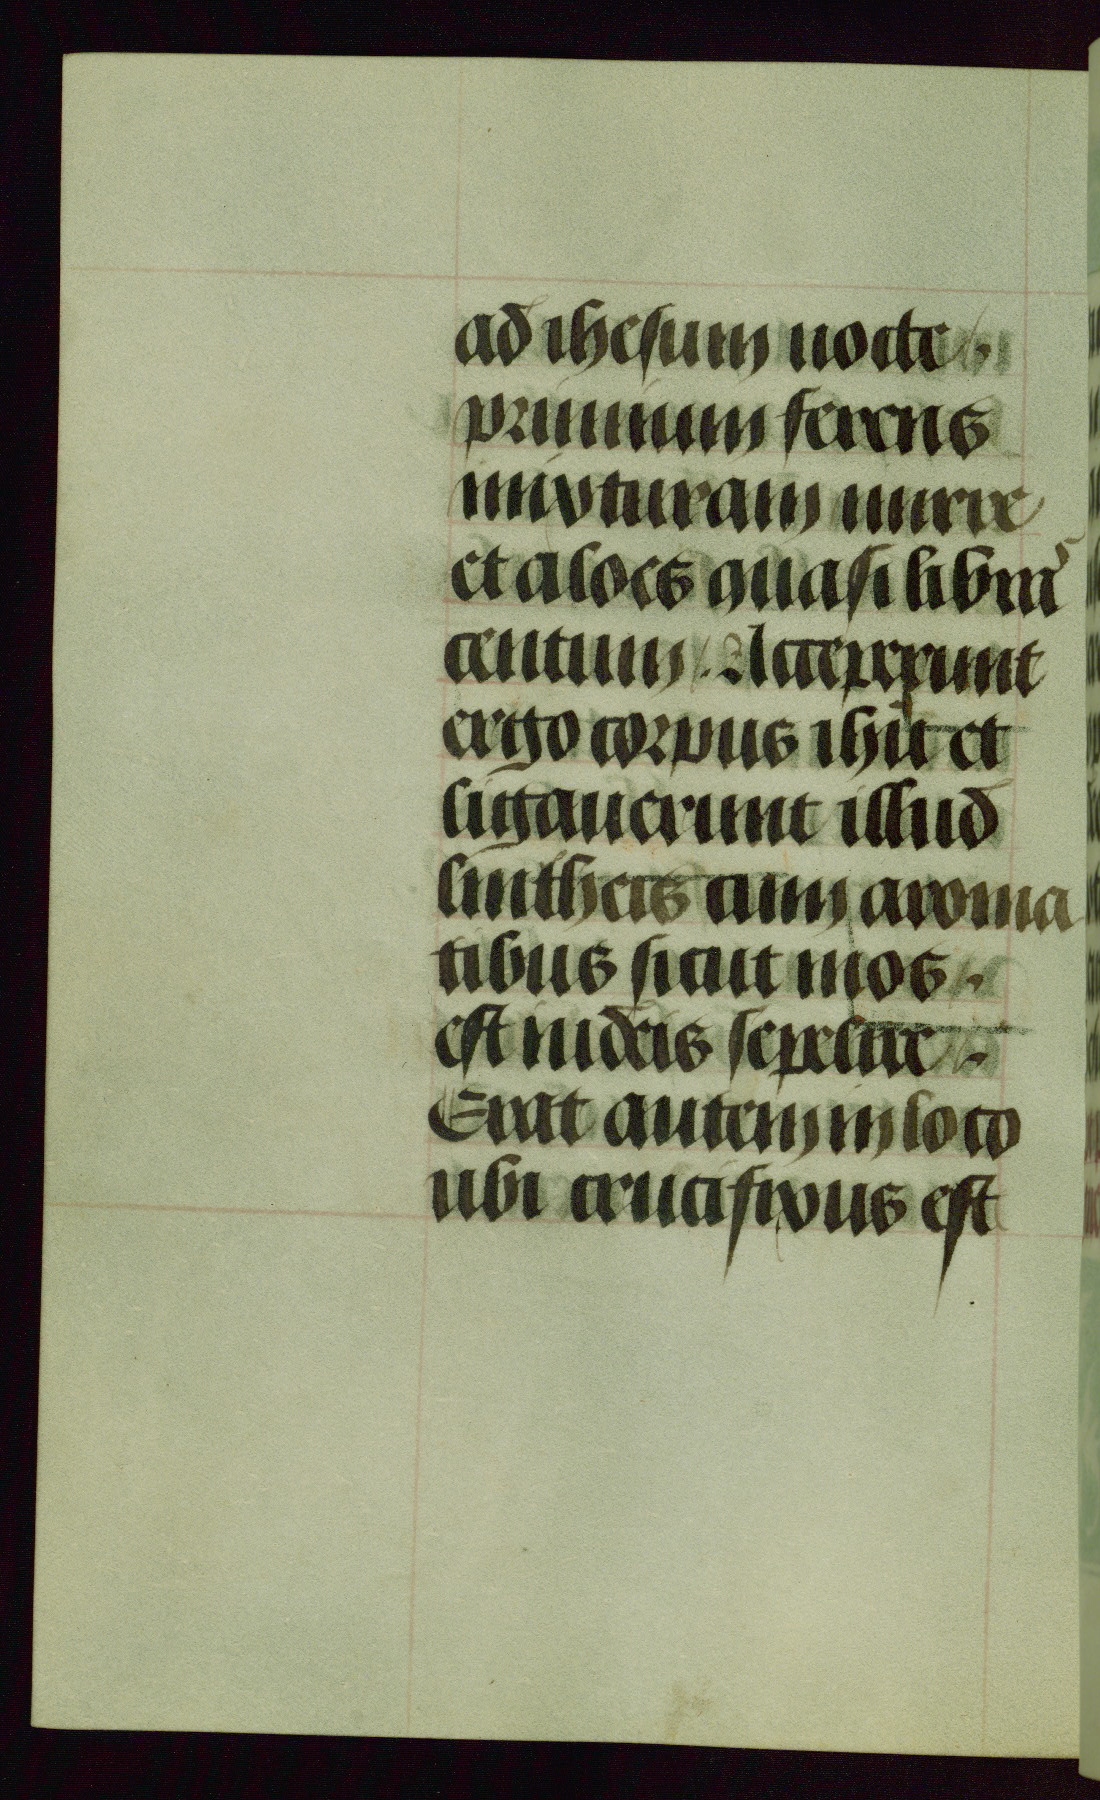 ad ihesum nocte.
primum ferens
mixturam mirre
et aloes quasi libras
centum. Acceperunt
ergo corpus ihu et
ligauerunt illud
lintheis cum aroma
tibus sicut mos.
est iudeis sepelire.
Erat autem in loco
ubi crucifixus est